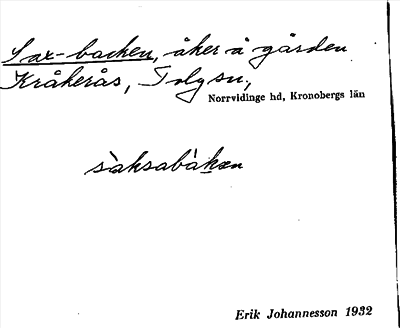 Sax-backen, åker å gården
Kråkerås, Tolg sn,
Norrvidinge hd, Kronobergs län
sàksabàkən
Erik Johannesson 1932